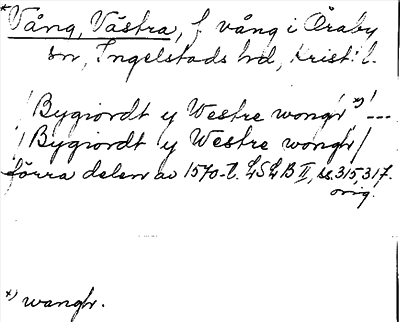 *Vång, Västra, f vång i Öraby
sn, Ingelstads hd, Krist. l.
/Bygiordt y Westre wongr *)/ ---
/Bygiordt y Westre wongr/
förra delen av 1570-t. LSLB II, ss. 315, 317.
orig.
*) wangr.